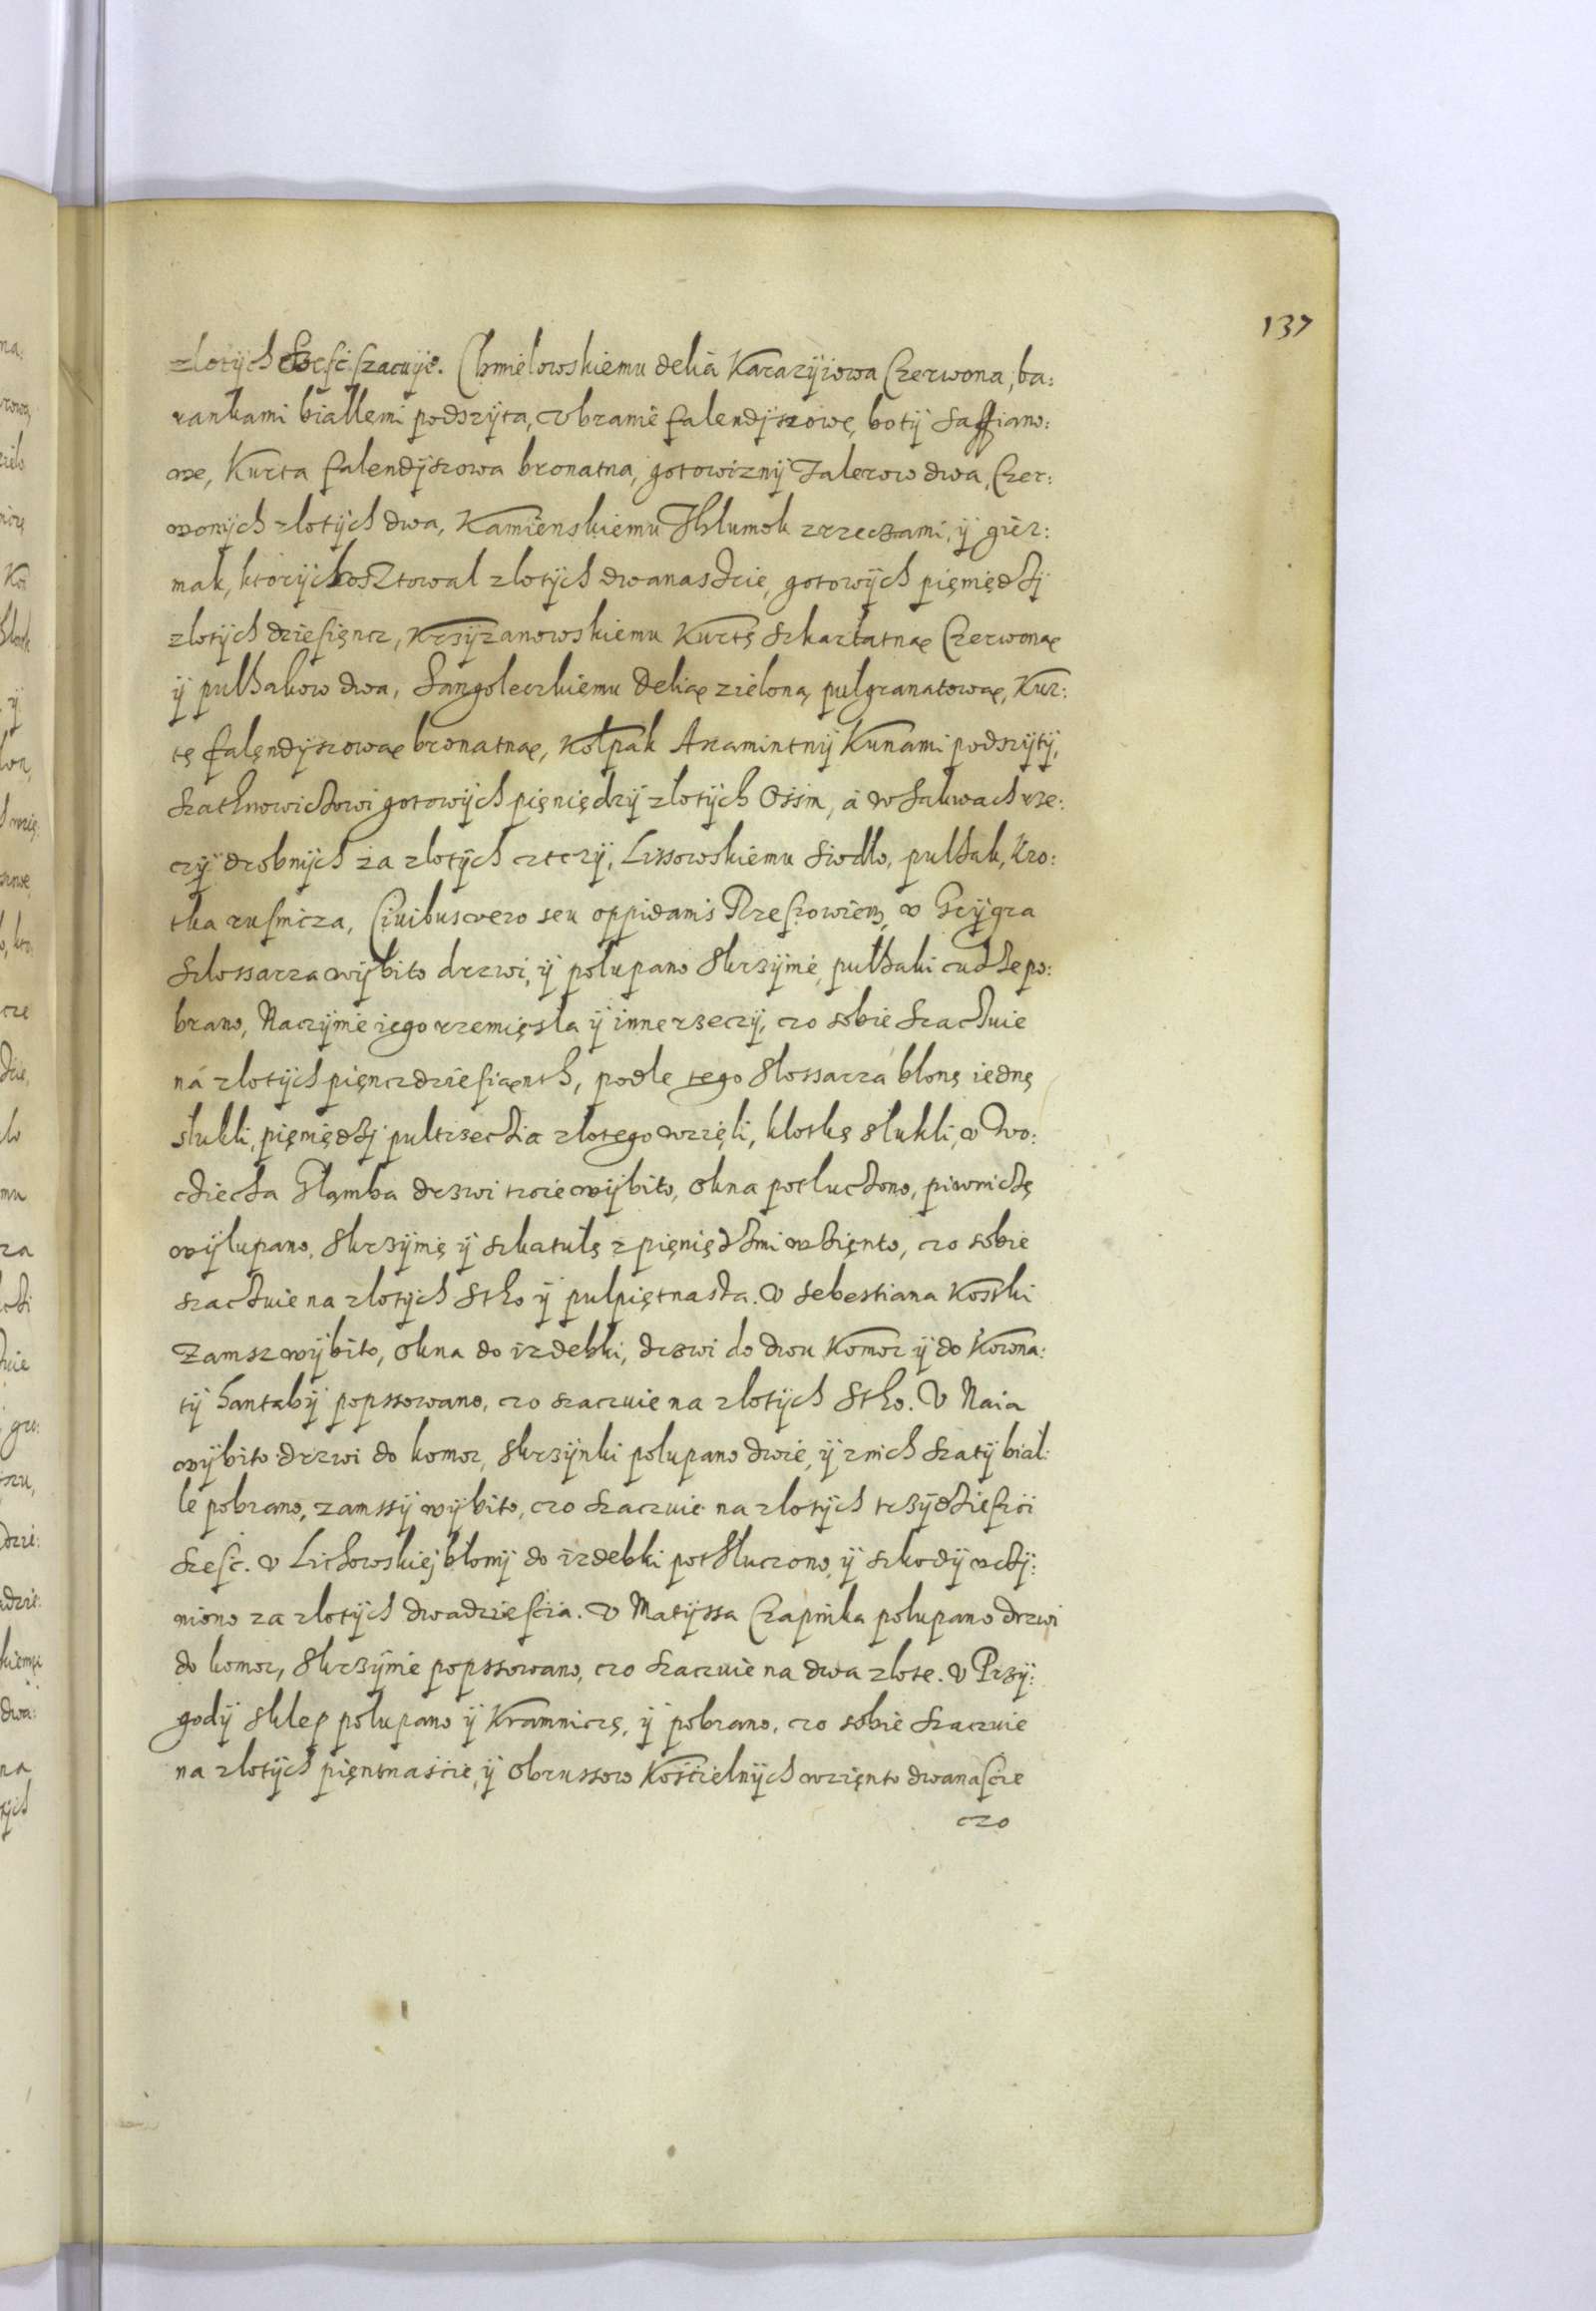 137
zlotÿch szesć szacuÿe. Chmielowskiemu delia Karazÿiowa Czerwona, ba:
rankami białlemi podszÿta, vbranie falendÿszowe, botÿ Saffiano:
we, Kurta falendÿszowa bronatna, gotowiznÿ Talerow dwa, Czer:
wonÿch zlotÿch dwa, Kamienskiemu Thlumok zrzeczami, ÿ gier:
mak, ktorÿ kosztowal zlotÿch dwanascie, gotowÿch pięniędzÿ
zlotÿch dziesięncz, Krzÿzanowskiemu Kurtę szkarłatnaę Czerwonaę
ÿ pulhakow dwa, Sangoleczkiemu deliaę zieloną pulgranatowaę, Kur:
tę falęndÿszowaę bronatnaę, Kołpak Axamintnÿ Kunami podszÿtÿ,
Szachnowiczowi gotowÿch pięniędzÿ zlotÿch Ośim, á w Sakwach rze:
czÿ drobnÿch za zlotÿch czterÿ, Lissowskiemu Siodło, pulhak, Kro:
tka rusnicza, Civibus vero seu oppidanis Rzeszowien, v Grÿgra
szlossarza wÿbito drzwi, ÿ polupano skrzÿnie, pulhaki cudze po:
brano, Naczÿnie iego rzemięsla ÿ inne rzeczÿ, czo sobie szacuie
ná zlotÿch pięnczdziesiaenth, podle tego slossarza blonę iednę
stukli, pięniędzÿ pultrzecia zlotego wzięli, klotkę stukli, v Wo:
ciecha Głąmba drzwi troie wÿbito, okna potluczono, piwniczę
wÿlupano, skrzÿnię ÿ szkatułę zpięniędzmi wzięnto, czo sobie
szacuie na zlotÿch Stho ÿ pulpiętnasta. V Sebestiana Kosski
Zamsz wÿbito, okna do izdebki, drzwi do dwu Komor ÿ do Komna:
tÿ hantabÿ popssowano, czo szaczuie na zlotÿch Stho. V Naia
wÿbito drzwi do komor, skrzÿnki polupano dwie, ÿ znich szatÿ biał:
le pobrano, zamssÿ wÿbito, czo szaczuie na zlotÿch trzÿdziesczi
szesć. V Lichowskieÿ błonÿ do izdebki pothłuczono, ÿ szkodÿ vczÿ:
niono za zlotÿch dwadziescia. V Matÿssa Czapnika polupano drzwi
do komor, skrzÿnie popssowano, czo szaczuie na dwa zlote. V Przÿ:
godÿ sklep połupano ÿ Kramniczę, ÿ pobrano, czo sobie szaczuie
na zlotÿch pięntnaście, ÿ obrussow Kościelnÿch wzięnto dwanascie
czo